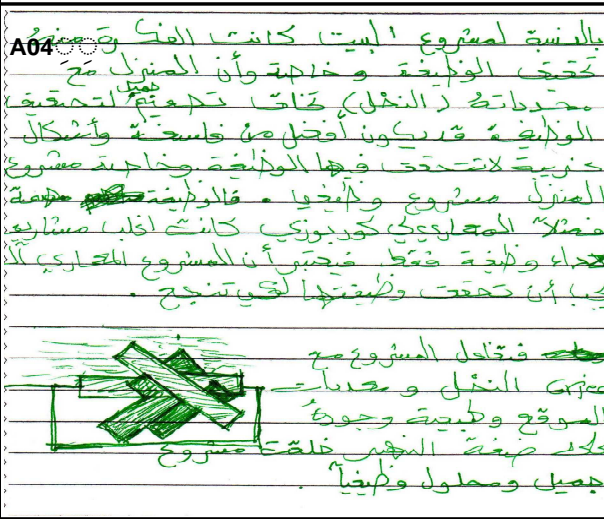 A04
بالنسبة لمشروع البيت كانت الفكرة
تحقيق الوظيفة وخاصة وأن المنزل مع
محدداته (النخل) كان تصميم جميل لتحقيق
الوظيفة قد يكون أفضل من فلسفة وأشكال
غريبة لا تتحقق فيها الوظيفة وخاصة مشروع
المنزل مشروع وظيفي . فالوظيفة مهمة
فمثلاً المعماري كوربوزي كانت اغلب مشاريعه
وظيفة فقط فيعتبر أن المشروع المعماري
يجب أن تحقق وظيفتها لكي تنجح .
فتداخل المشروع مع
Grid النخل ومحددات
الموقع وطبيعة وجوده
على ضفة النهر خلقت مشروع
جميل ومحلول وظيفياً .